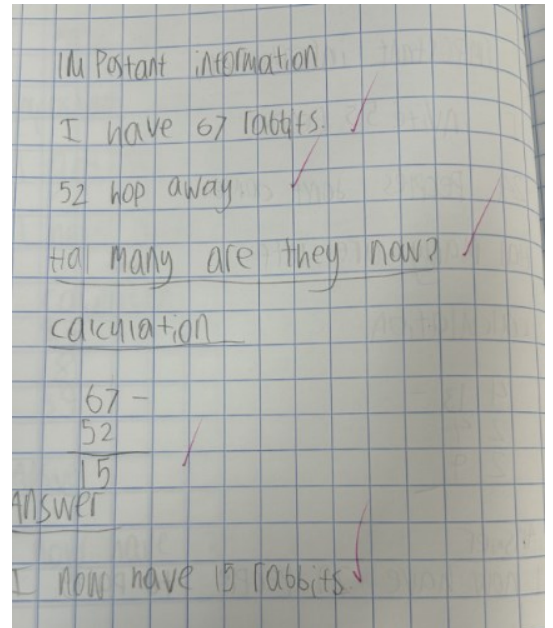 IMPortant information
I have 67 rabbits.
52 hop away
Ha many are they now?
calculation
67 -
52
15
Answer
I now have 15 rabbits